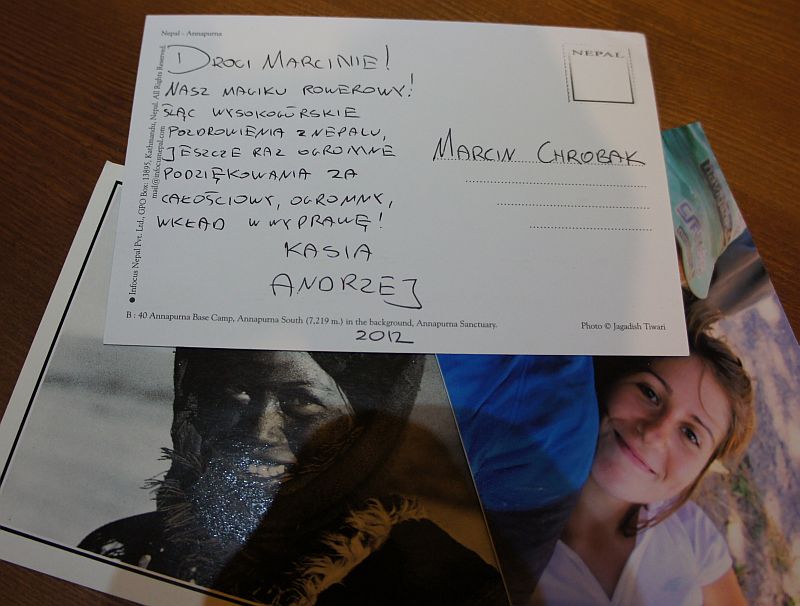 Nepal - Annapurna
DROGI MARCINIE!
NASZ MAGIKU ROWEROWY!
ŚLĄC WYSOKOGÓRSKIE
POZDROWIENIA Z NEPALU,
JESZCZE RAZ OGROMNE
PODZIĘKOWANIA ZA
CAŁOŚCIOWY, OGROMNY,
WKŁAD W WYPRAWĘ!
KASIA
ANDRZEJ
NEPAL
MARCIN CHROBAK
Infocus Nepal Pvt. Ltd., GPO Box: 13895, Kathmandu, Nepal. All Rights Reserved.
mail@infocusnepal.com
B : 40 Annapurna Base Camp, Annapurna South (7,219 m.) in the background, Annapurna Sanctuary.
Photo © Jagadish Tiwari
2012